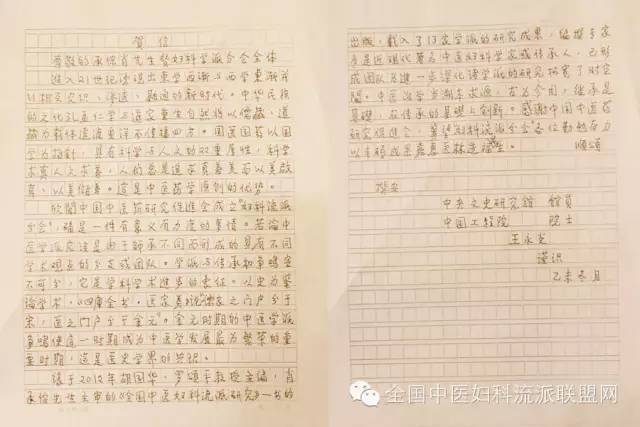 贺信
尊敬的承悰首先生暨妇科学派分会全体
进入21世纪涌现出东学西渐与西学东渐并
相互交识、渗透、融通的新时代。中华民族
的文化孔孟仁学与道家重生自然将以儒
为载体源流更洋不停摄四方。国医国药以国
学为指针，具有科学与人文的双重属性，科学
求真人文求善，人的意愿道求真善美而以美启
真、以美储善。这是中医药学原创的优势。
欣闻中国中医药研究促进会成立“妇科流派
分会”，确是一件有意义有力度的事情。若论中
医学派应该是由于师承不同而形成的具有不同
学术观点的分支或团队。学派与传承和争鸣密
不可分，它是学科学术进步的责任。以史为鉴
论学术。《四库全书·医家类》说“儒家之门户分于
宋，医之门户分于金元”。金元时期的中医学派
争鸣使这一时期成为中医学发展最为繁荣的重
要时期，这是医史学界的共识。
鉴于2012年胡国华、罗颂平教授主编，肖
承悰先生主审的《全国中医妇科流派研究》一书的
出版，载入了13家学派的研究成果，编撰专家
多是近现代著名中医妇科学家或传承人，已形
成团队为进一步深化诸学派的研究拓宽了时空
间。中医治学当溯本求源，古为今用，继承是
基础，在传承的基础上创新。感谢中国中医药
研究促进会，冀望“妇科流派分会”各位勤勉奋力
以丰硕成果嘉惠医林造福众生。 顺颂
撰安
中央文史研究馆 馆员
中国工程院 院士
王永炎
谨识
乙未冬月
全国中医妇科流派联盟网